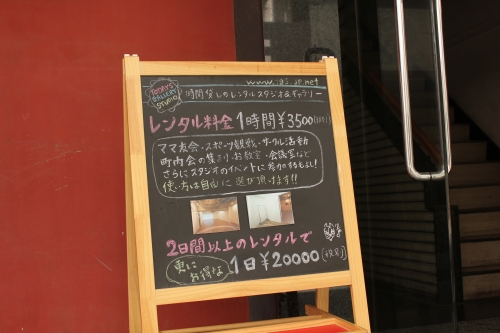 TODAYS
GALLERY
STUDIO
時間貸しのレンタルスタジオ&ギャラリー
レンタル料金 1時間¥3500(税別)
ママ友会・スポーツ観戦・サークル活動
町内会の集まり・お教室・会議室など
さらにスタジオのイベントに参加するもよし!
使い方は自由に選び頂けます!!
2日間以上のレンタルで
更に
お得な
1日¥20000(税別)